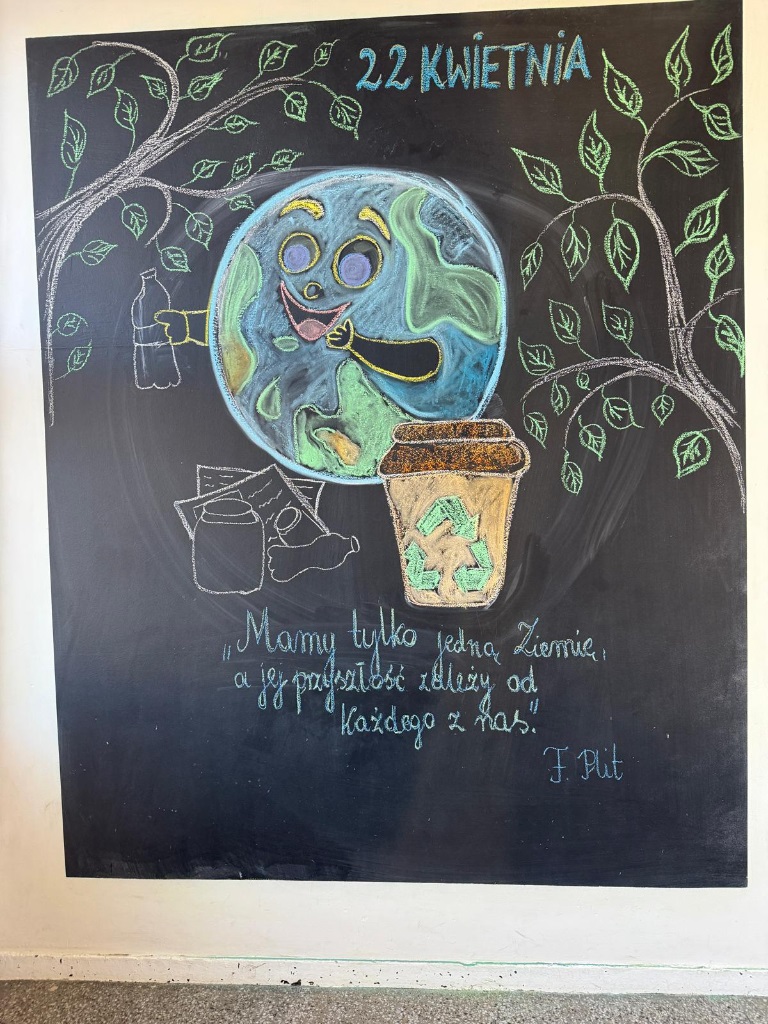 22 KWIETNIA
„Mamy tylko jedną Ziemię,
a jej przyszłość zależy od
każdego z nas."
F. Plit